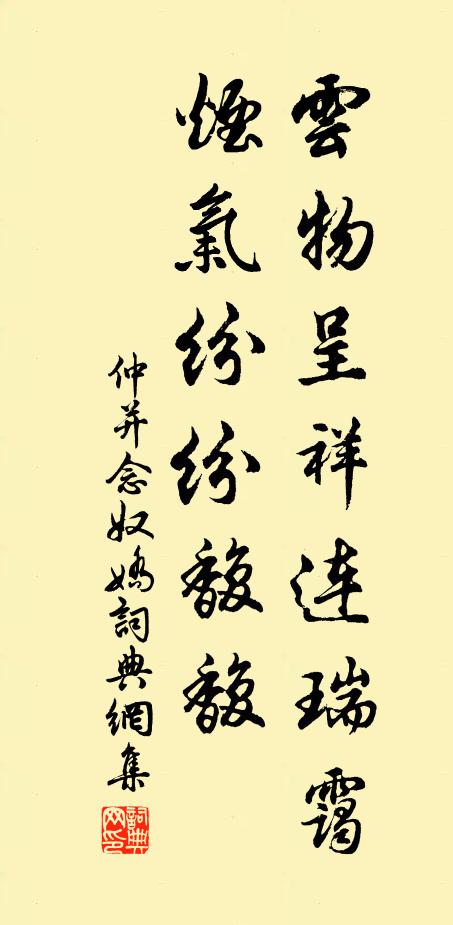 雲物呈祥連瑞靄
煙氣紛紛馥馥
仲并念奴嬌詞典網集
詞典网印